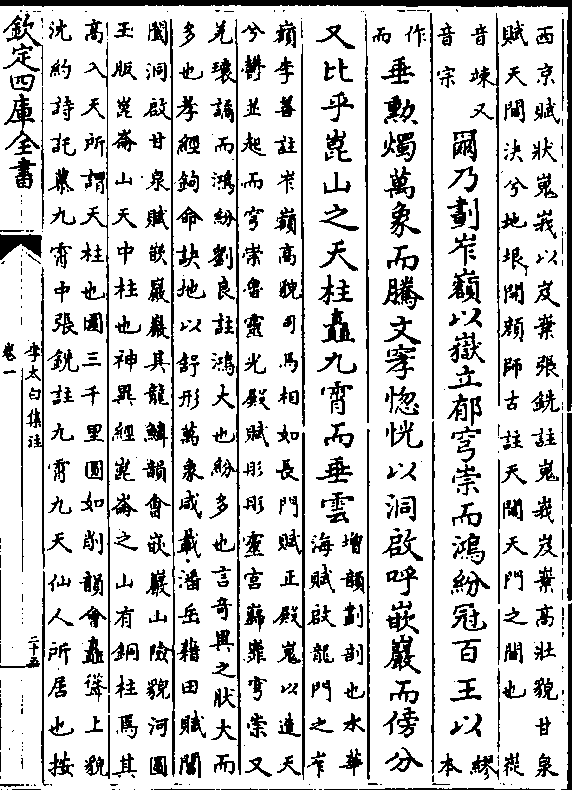 西京賦狀嵬峩以岌嶪張銑註嵬峩岌嶪高壯貌甘泉
賦天閫決兮地垠開顔師古註天閫天門之閫也 嵸
音竦又
音宗
爾乃劃岝嶺以嶽立郁穹崇而鴻紛冠百王以
繆
本
作
而
垂勲燭萬象而騰文窙惚恍以洞啟呼嵌巖而傍分
又比乎崑山之天柱矗九霄而垂雲
增韻劃剖也水華
海賦啟龍門之岝
嶺李善註岝嶺高貌司馬相如長門賦正殿嵬以造天
兮鬱並起而穹崇魯靈光殿賦彤彤靈宮巋嶵穹崇又
瓌譎而鴻紛劉良註鴻大也紛多也言奇異之狀大而
多也孝經鉤命訣地以舒形萬象咸載潘岳藉田賦閶
闔洞啟甘泉賦嵌巖巖其龍鱗韻會嵌巖山險貌河圖
玉版崑崙山天中柱也神異經崑崙之山有銅柱焉其
高入天所謂天柱也圍三千里圓如削韻會矗聳上貌
沈約詩託慕九霄中張銑註九霄九天仙人所居也按
欽定四庫全書
李太白集注
卷一
二十五